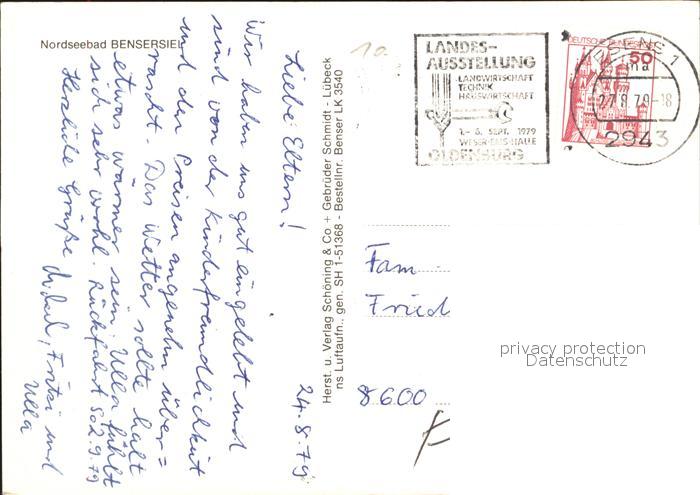 Nordseebad BENSERSIEL
24.8.79
Liebe Eltern!
Wir haben uns gut eingelebt und
sind von der Kinderfreundlichkeit
und den Preisen angenehm über=
rascht. Das Wetter sollte halt
etwas wärmer sein. Ulla fühlt
sich sehr wohl. Rückfahrt So 2.9.79
Herzliche Grüße Michael, Fritzi und
Ulla
Herst. u. Verlag Schöning & Co + Gebrüder Schmidt - Lübeck
ns Luftaufn., gen. SH 1-51368 - Bestellnr. Benser LK 3540
10
LANDES-
AUSSTELLUNG
LANDWIRTSCHAFT
TECHNIK
HAUSWIRTSCHAFT
1.- 6. SEPT. 1979
WESER-EMS-HALLE
OLDENBURG
DEUTSCHE BUNDESPOST
50
ESENS 1
ma
27.8.79-18
2943
Fam.
Fried
8600
privacy protection
Datenschutz